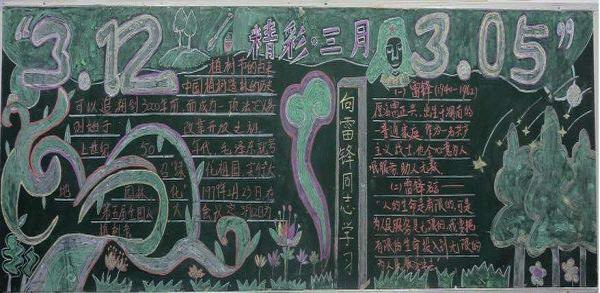 "3.12
精彩·三月
3.05"
植树节的由来
中国植树造林的历史
可以追溯到3000年前,而成为一项法定的
则始于
改革开放之初
上世纪
50
年代 毛泽东就号
召"绿
化祖国,实行大
地
园林
化"
1979年2月23日
第五届全国人
大
植树节
向雷锋同志学习
(一)雷锋(1940-1962)
原名雷正兴,出生于湖南的
普通家庭 作为一名共产
主义战士,他全心意为人
民服务,助人无数
(二)雷锋名言——
"人的生命是有限的,可是
为人民服务是无限的,我要把
有限的生命投入到无限的
为人民服务